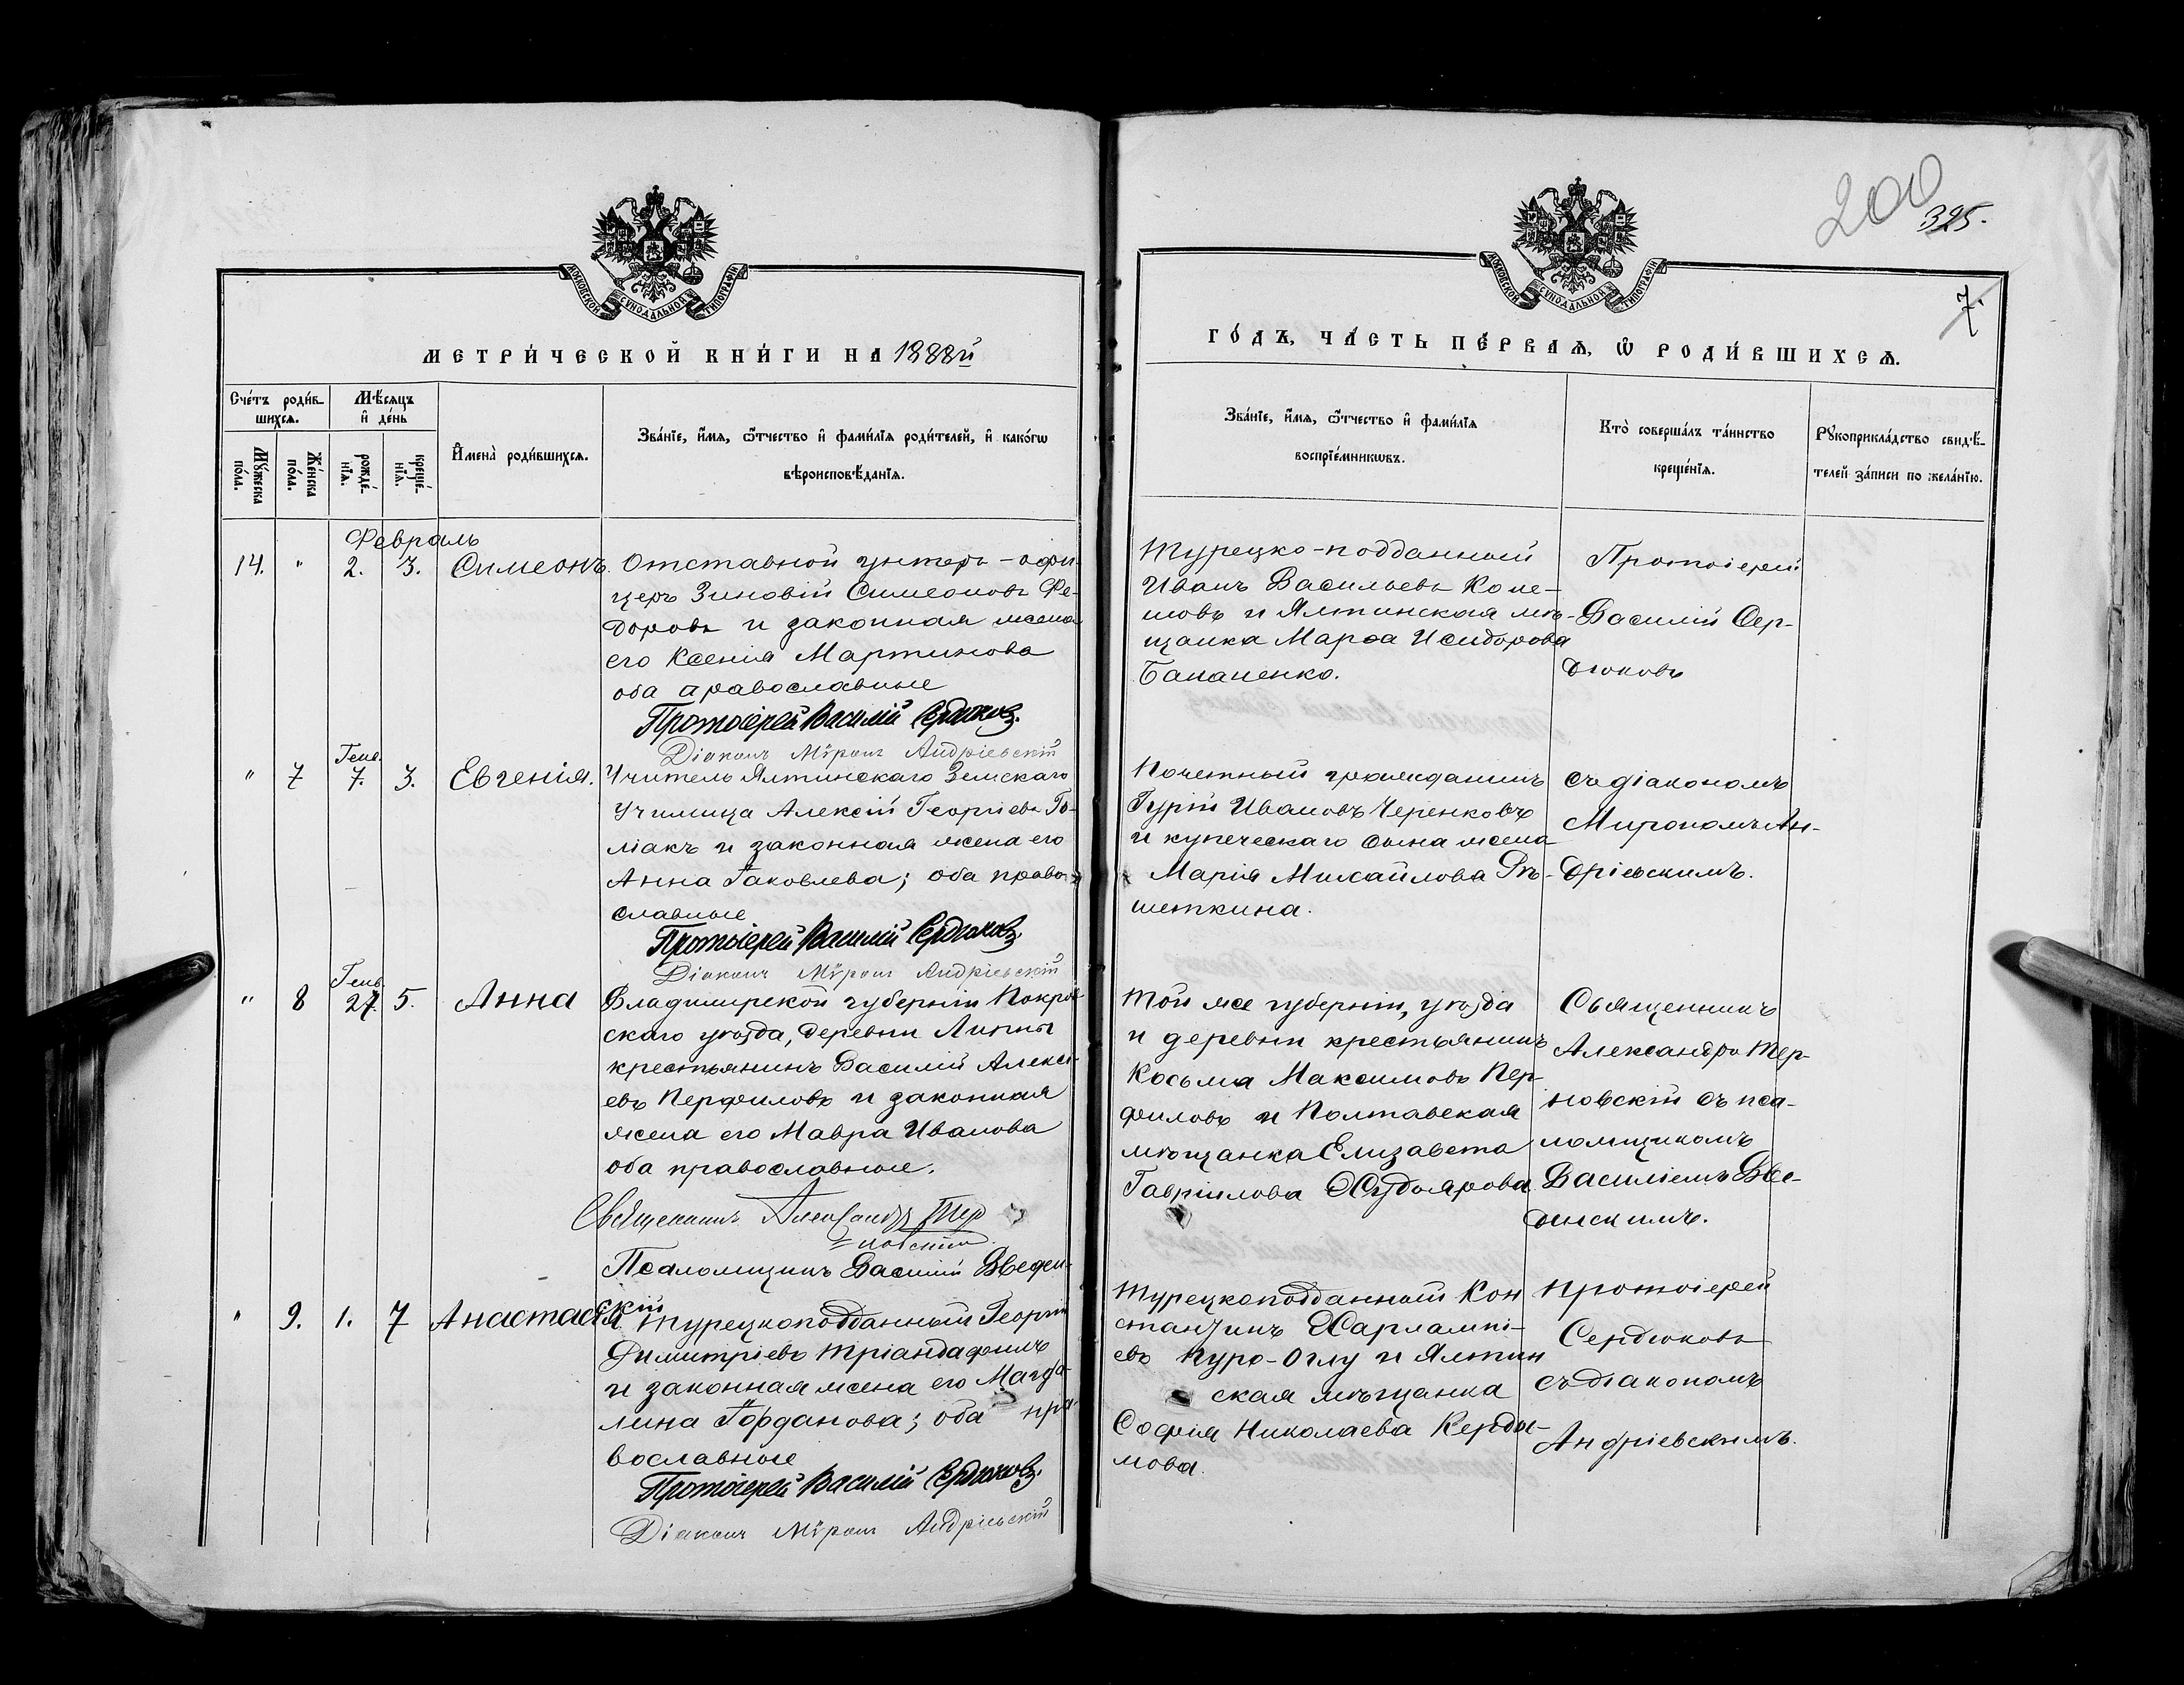 МОСКОВСКОЙ СѴНОДАЛЬНОЙ ТИПОГРАФІИ
МЕТРИ́ЧЕСКОЙ КНИ́ГИ НА 1888й
Сче́тъ роди́в-
шихсѧ.
Мѣ́сѧцъ
и҆ де́нь
Мꙋ́жеска по́ла.
Же́нска по́ла.
рожде́-
нїѧ.
креще́-
нїѧ.
И҆мена̀ роди́вшихсѧ.
Зва́нїе, и҆́мѧ, ѻ҆́тчество и҆ фами́лїѧ роди́телей, и҆ како́гѡ
вѣроисповѣ́данїѧ.
Февраль
14. " 2. 3. Симеонъ. Отставной унтеръ-офи-
церъ Зиновій Симеоновъ Фе-
доровъ и законная жена
его Ксенія Мартинова
оба православные
Протоіерей Василій Сердюковъ.
Діаконъ Мѵронъ Андріевскій
Генв.
" 7 7. 3. Евгенія. Учитель Ялтинскаго Земскаго
Училища Алексій Георгіевъ Го-
ліакъ и законная жена его
Анна Іаковлева; оба право-
славные
Протоіерей Василій Сердюковъ.
Діаконъ Мѵронъ Андріевскій
Генв.
" 8 27. 5. Анна Владимирской губерніи Покров-
скаго уѣзда, деревни Липны
крестьянинъ Василій Алексі-
евъ Перфиловъ и законная
жена его Мавра Иванова
оба православные.
Священникъ Александръ Тер
=новскій.
Псаломщикъ Василій Введен-
скій
" 9. 1. 7 Анастасія Турецкоподданный Георгій
Димитріевъ Тріандафилъ
и законная жена его Магда-
лина Іорданова; оба пра-
вославные
Протоіерей Василій Сердюковъ.
Діаконъ Мѵронъ Андріевскій
200
325.
7.
МОСКОВСКОЙ СѴНОДАЛЬНОЙ ТИПОГРАФІИ
ГО́ДЪ, ЧА́СТЬ ПЕ́РВАѦ, Ѽ РОДИ́ВШИХСѦ.
Зва́нїе, и҆́мѧ, ѻ҆́тчество и҆ фами́лїѧ
воспрїе́мникѡвъ.
Кто̀ соверша́лъ та́инство
креще́нїѧ.
Рꙋкоприкла́дство свидѣ́-
телей за́писи по жела́нїю.
Турецко-подданный
Иванъ Васильевъ Коле-
шовъ и Ялтинская мѣ-
щанка Марѳа Исидорова
Бапаненко.
Протоіерей
Василій Сер-
дюковъ
Почетный гражданинъ
Гурій Ивановъ Черенковъ
и купеческаго сына жена
Марія Михайлова Рѣ-
шеткина.
съ діакономъ
Мирономъ Ан-
дріевскимъ.
Той же губерніи, уѣзда
и деревни крестьянинъ
Косьма Максимовъ Пер-
филовъ и Полтавская
мѣщанка Елизавета
Гавріилова Худоярова
Священникъ
Александръ Тер-
новскій съ пса-
ломщикомъ
Василіемъ Вве-
динскимъ.
Турецкоподданный Кон
стантинъ Харлампі-
евъ Куро-Оглу и Ялтин
ская мѣщанка
Софія Николаева Керды-
мова.
Протоіерей
Сердюковъ
съ діакономъ
Андріевскимъ.